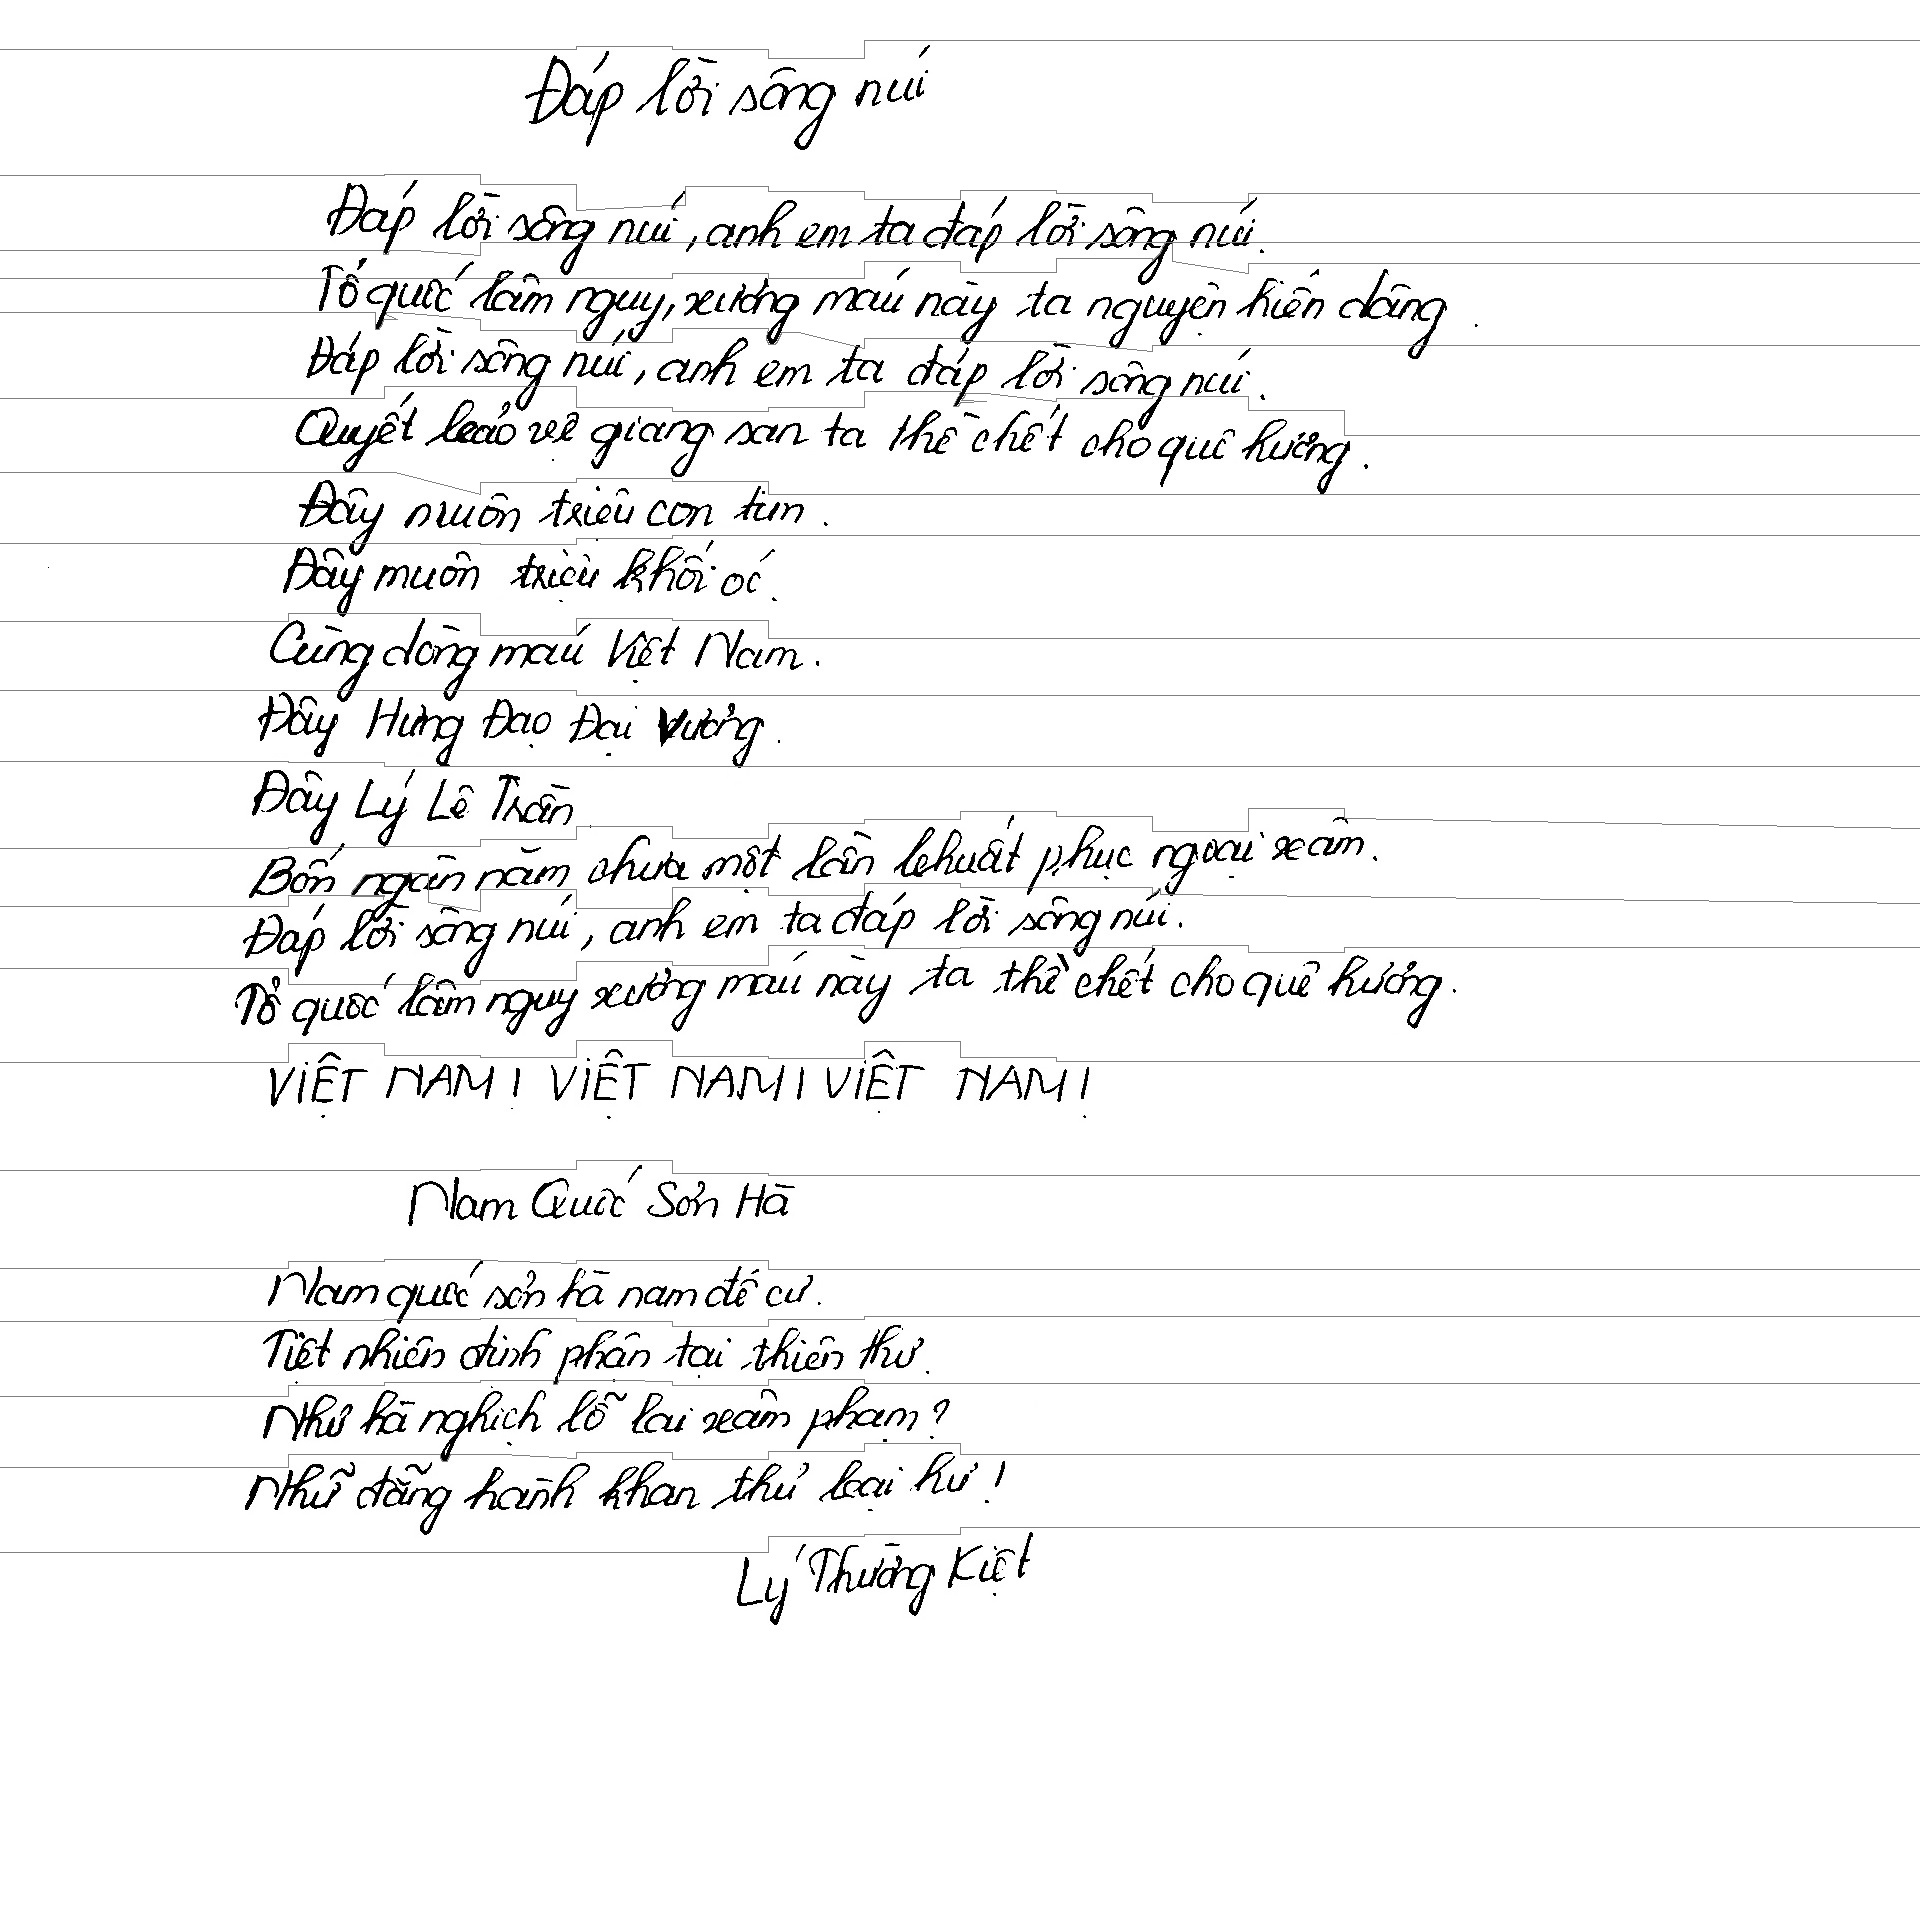 Đáp lời sông núi
Đáp lời sông núi, anh em ta đáp lời sông núi.
Tổ quốc lâm nguy, xương máu này ta nguyện hiến dâng.
Đáp lời sông núi, anh em ta đáp lời sông núi.
Quyết bảo vệ giang san ta thề chết cho quê hương.
Đây muôn triệu con tim.
Đây muôn triệu khối óc.
Cùng dòng máu Việt Nam.
Đây Hưng Đạo Đại Vương.
Đây Lý Lê Trần.
Bốn ngàn năm chưa một lần khuất phục ngoại xâm.
Đáp lời sông núi, anh em ta đáp lời sông núi.
Tổ quốc lâm nguy xương máu này ta thề chết cho quê hương.
VIỆT NAM! VIỆT NAM! VIỆT NAM!
Nam Quốc Sơn Hà
Nam quốc sơn hà nam đế cư.
Tiệt nhiên định phận tại thiên thư.
Như hà nghịch lỗ lai xâm phạm?
Nhữ đẳng hành khan thủ bại hư!
Lý Thường Kiệt